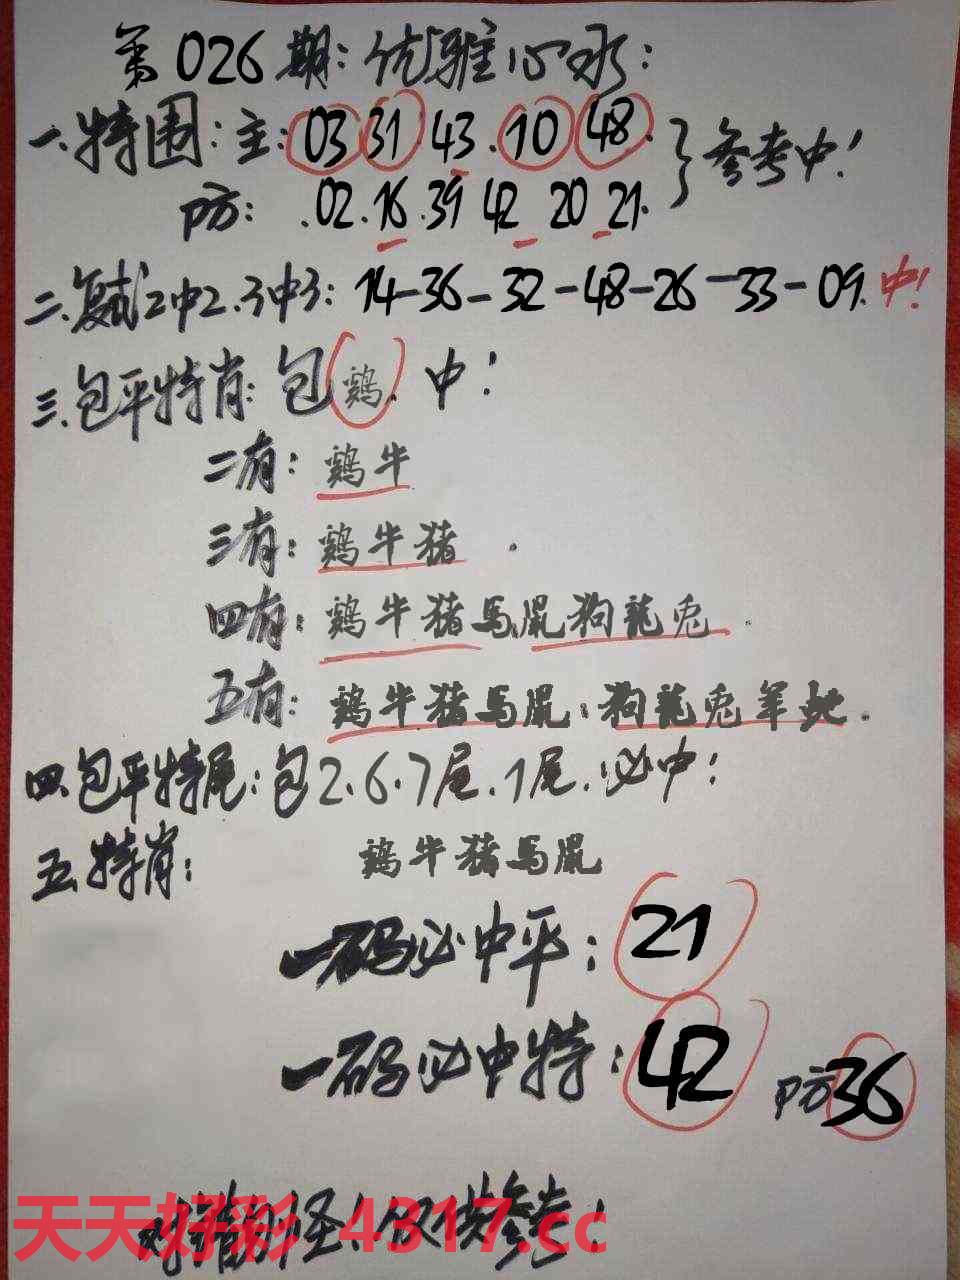 第026期:优雅心水:
一.特围:主:03 31.43.10 48.}参考中!
防:.02.16.39 42 20 21.
二.复式2中2.3中3:14-36-32-48-26-33-09.中!
三.包平特肖:包鷄.中!
二有:鷄牛
三有:鷄牛猪.
四有:鷄牛猪馬鼠狗龍兎.
五有:鷄牛猪馬鼠:狗龍兎羊虵.
四.包平特尾:包2.6.7尾.1尾.必中:
五.特肖:鷄牛猪馬鼠
一码必中平:21
一码必中特:42 防36
天天好彩 4317.cc
怪!仅供参考!